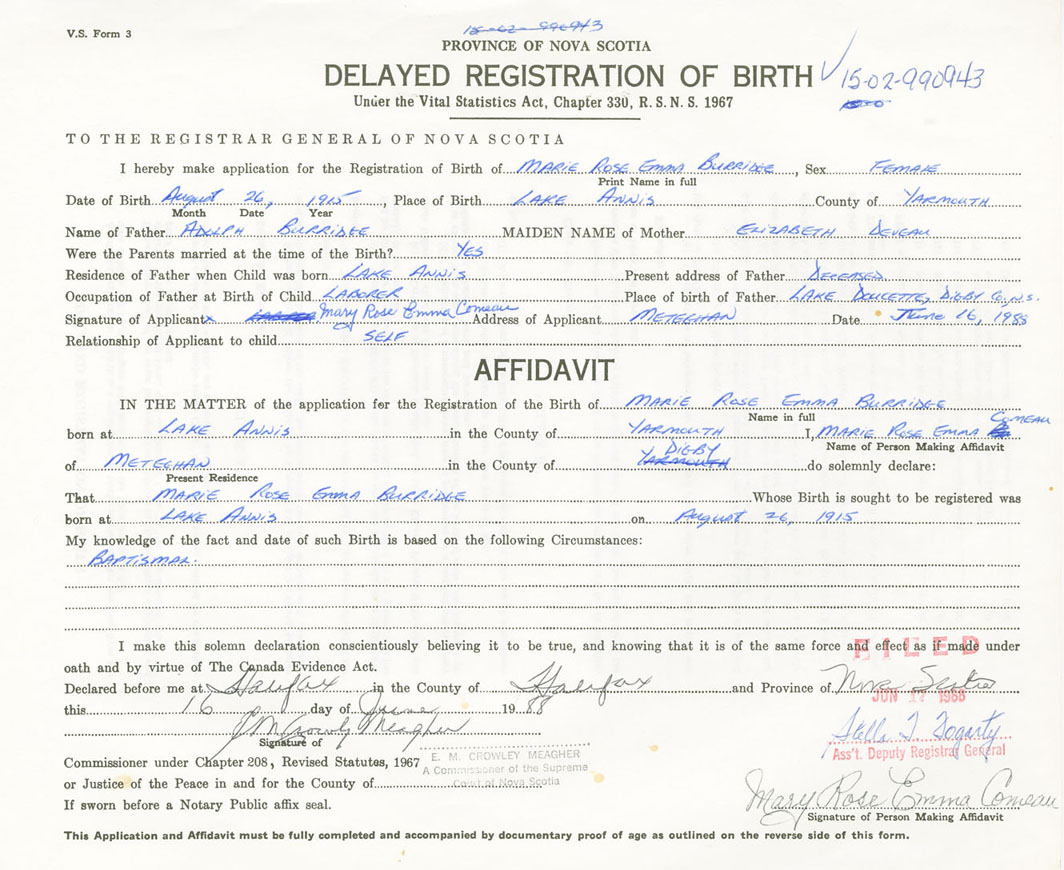 V.S. Form 3
15-02-990943
PROVINCE OF NOVA SCOTIA
DELAYED REGISTRATION OF BIRTH 15-02-990943
Under the Vital Statistics Act, Chapter 330, R. S. N. S. 1967
TO THE REGISTRAR GENERAL OF NOVA SCOTIA
I hereby make application for the Registration of Birth of MARIE ROSE EMMA BURRIDGE, Sex FEMALE
Print Name in full
Date of Birth August 26, 1915, Place of Birth LAKE ANNIS County of YARMOUTH
Month Date Year
Name of Father ADOLPH BURRIDGE MAIDEN NAME of Mother ELIZABETH DEVEAU
Were the Parents married at the time of the Birth? YES
Residence of Father when Child was born LAKE ANNIS Present address of Father DECEASED
Occupation of Father at Birth of Child LABORER Place of birth of Father LAKE DOUCETTE, DIGBY Co. N.S.
Signature of Applicant x Mary Rose Emma Comeau Address of Applicant METEGHAN Date June 16, 1988
Relationship of Applicant to child SELF
AFFIDAVIT
IN THE MATTER of the application for the Registration of the Birth of MARIE ROSE EMMA BURRIDGE
Name in full
born at LAKE ANNIS in the County of YARMOUTH I, MARIE ROSE EMMA COMEAU
Name of Person Making Affidavit
of METEGHAN in the County of YARMOUTH DIGBY do solemnly declare:
Present Residence
That MARIE ROSE EMMA BURRIDGE Whose Birth is sought to be registered was
born at LAKE ANNIS on August 26, 1915
My knowledge of the fact and date of such Birth is based on the following Circumstances:
BAPTISMAL.
I make this solemn declaration conscientiously believing it to be true, and knowing that it is of the same force and effect as if made under
FILED
oath and by virtue of The Canada Evidence Act.
Declared before me at Halifax in the County of Halifax and Province of Nova Scotia
JUN 17 1988
this 16 day of June 1988
E M Crowley Meagher
Stella T. Fogarty
Signature of
Ass't. Deputy Registrar General
Commissioner under Chapter 208, Revised Statutes, 1967
E. M. CROWLEY MEAGHER
A Commissioner of the Supreme
Court of Nova Scotia
or Justice of the Peace in and for the County of
If sworn before a Notary Public affix seal.
Mary Rose Emma Comeau
Signature of Person Making Affidavit
This Application and Affidavit must be fully completed and accompanied by documentary proof of age as outlined on the reverse side of this form.